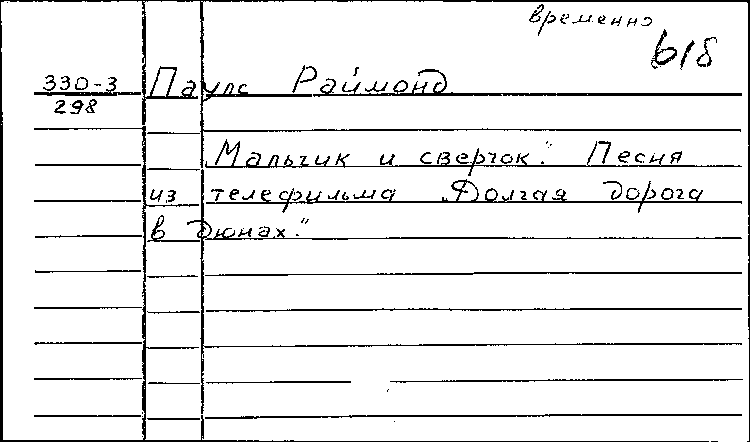 временно
618
330-3 Паулс Раймонд
298
Мальчик и сверчок." Песня
из телефильма „Долгая дорога
в дюнах."